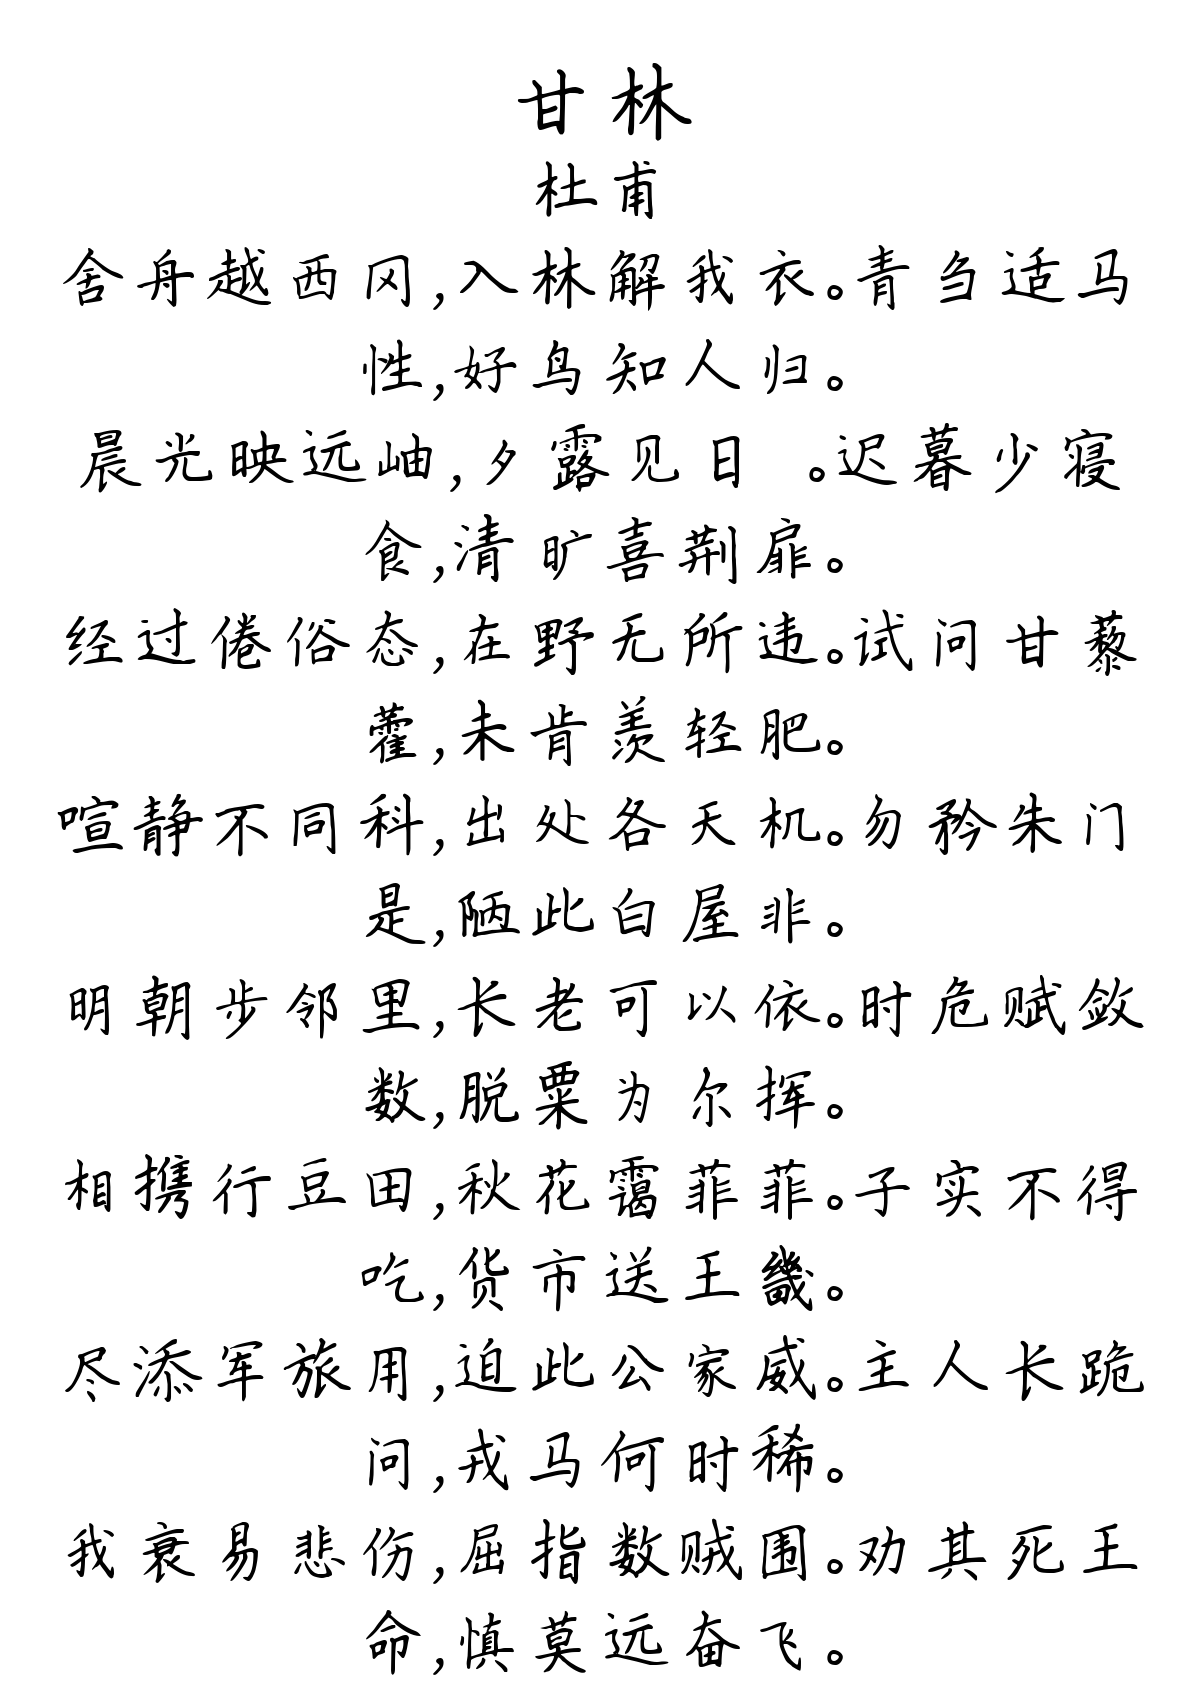 甘林
杜甫
舍舟越西冈,入林解我衣。青刍适马
性,好鸟知人归。
晨光映远岫,夕露见日 。迟暮少寝
食,清旷喜荆扉。
经过倦俗态,在野无所违。试问甘藜
藿,未肯羡轻肥。
喧静不同科,出处各天机。勿矜朱门
是,陋此白屋非。
明朝步邻里,长老可以依。时危赋敛
数,脱粟为尔挥。
相携行豆田,秋花霭菲菲。子实不得
吃,货市送王畿。
尽添军旅用,迫此公家威。主人长跪
问,戎马何时稀。
我衰易悲伤,屈指数贼围。劝其死王
命,慎莫远奋飞。